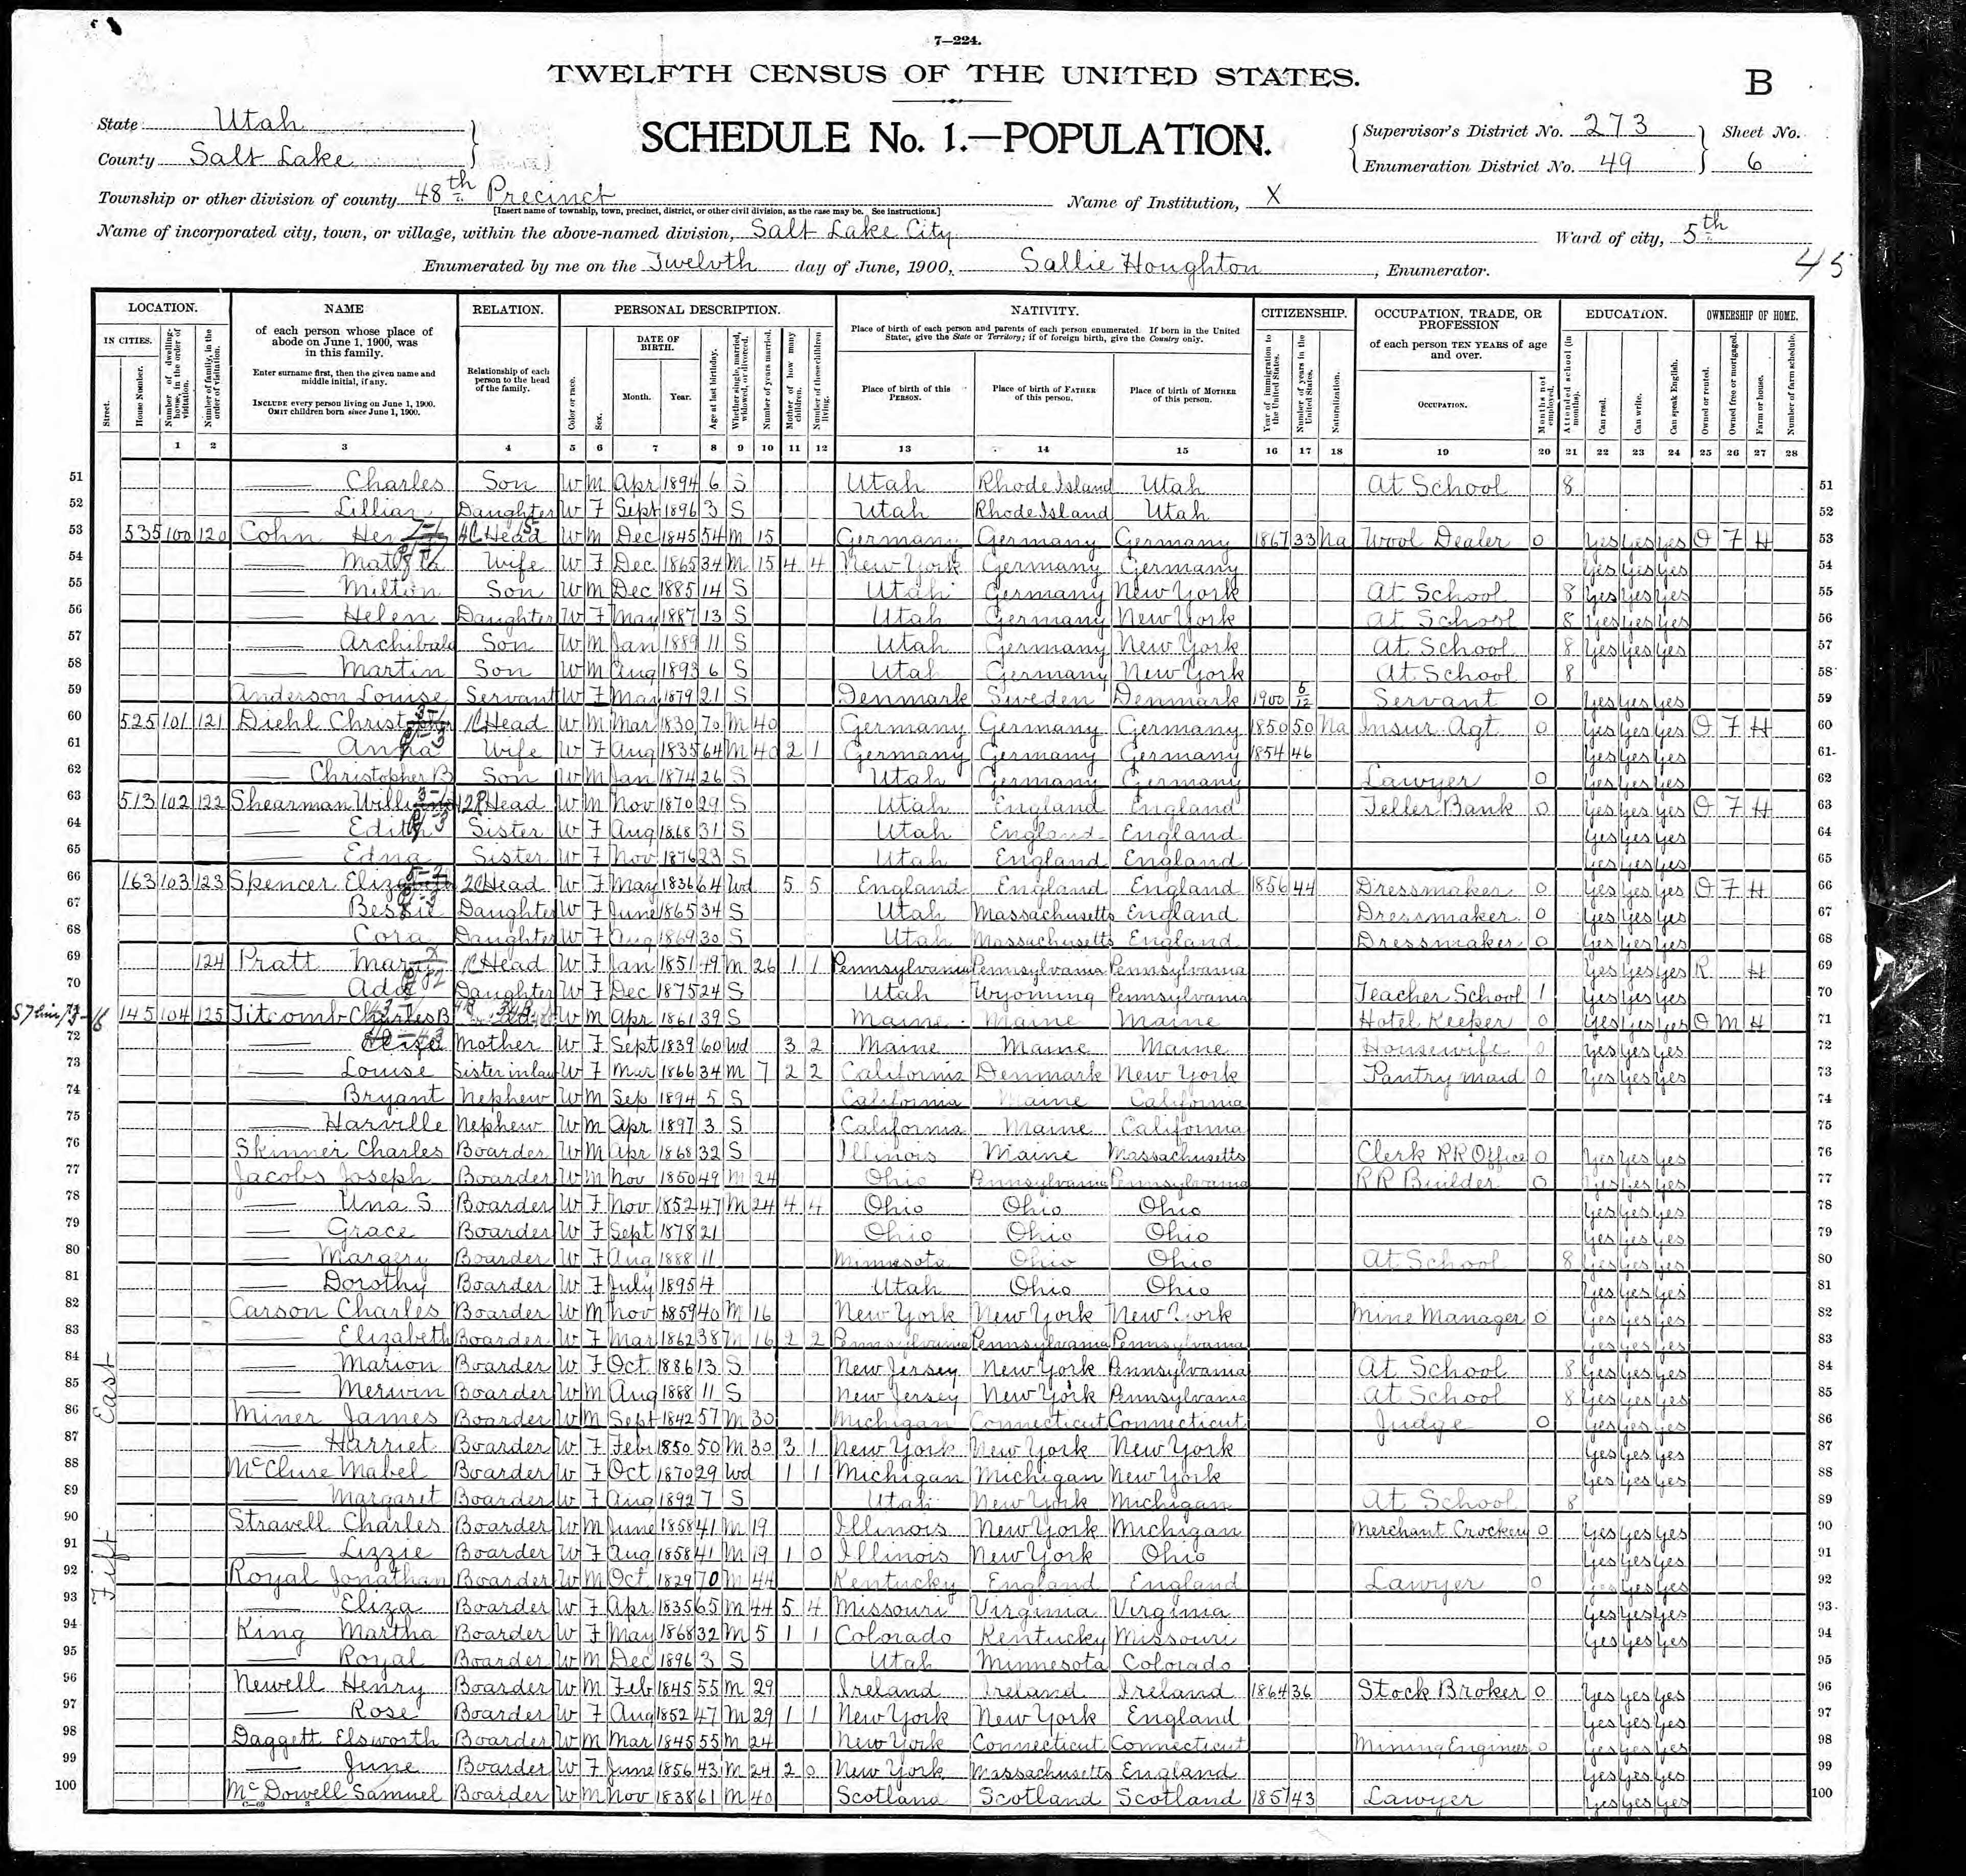 7—224.
TWELFTH CENSUS OF THE UNITED STATES.
B
State Utah
County Salt Lake
SCHEDULE No. 1.—POPULATION.
Supervisor's District No. 273 Sheet No.
Enumeration District No. 49 6
Township or other division of county 48th Precinct Name of Institution, X
[Insert name of township, town, precinct, district, or other civil division, as the case may be. See instructions.]
Name of incorporated city, town, or village, within the above-named division, Salt Lake City Ward of city, 5th
45
Enumerated by me on the Twelvth day of June, 1900, Sallie Houghton, Enumerator.
LOCATION. NAME RELATION. PERSONAL DESCRIPTION. NATIVITY. CITIZENSHIP. OCCUPATION, TRADE, OR PROFESSION EDUCATION. OWNERSHIP OF HOME.
IN CITIES. Street. House Number. Number of dwelling-house, in the order of visitation. Number of family, in the order of visitation.
of each person whose place of abode on June 1, 1900, was in this family.
Enter surname first, then the given name and middle initial, if any.
INCLUDE every person living on June 1, 1900. OMIT children born since June 1, 1900.
Relationship of each person to the head of the family.
Color or race. Sex. DATE OF BIRTH. Month. Year. Age at last birthday. Whether single, married, widowed, or divorced. Number of years married. Mother of how many children. Number of these children living.
Place of birth of each person and parents of each person enumerated. If born in the United States, give the State or Territory; if of foreign birth, give the Country only.
Place of birth of this PERSON. Place of birth of FATHER of this person. Place of birth of MOTHER of this person.
Year of immigration to the United States. Number of years in the United States. Naturalization.
of each person TEN YEARS of age and over.
OCCUPATION. Months not employed. Attended school (in months). Can read. Can write. Can speak English. Owned or rented. Owned free or mortgaged. Farm or house. Number of farm schedule.
1 2 3 4 5 6 7 8 9 10 11 12 13 14 15 16 17 18 19 20 21 22 23 24 25 26 27 28
51 —— Charles Son W M Apr 1894 6 S Utah Rhode Island Utah At School 8 51
52 —— Lillian Daughter W F Sept 1896 3 S Utah Rhode Island Utah 52
53 535 100 120 Cohn Head W M Dec 1845 54 M 15 Germany Germany Germany 1867 33 Na Wool Dealer 0 Yes Yes Yes O F H 53
54 —— Wife W F Dec 1865 34 M 15 4 4 New York Germany Germany Yes Yes Yes 54
55 —— Milton Son W M Dec 1885 14 S Utah Germany New York At School 8 Yes Yes Yes 55
56 —— Helen Daughter W F May 1887 13 S Utah Germany New York At School 8 Yes Yes Yes 56
57 —— Archibald Son W M Jan 1889 11 S Utah Germany New York At School 8 Yes Yes Yes 57
58 —— Martin Son W M Aug 1893 6 S Utah Germany New York At School 8 58
59 Anderson Louise Servant W F May 1879 21 S Denmark Sweden Denmark 1900 5/12 Servant 0 Yes Yes Yes 59
60 525 101 121 Diehl Christopher Head W M Mar 1830 70 M 40 Germany Germany Germany 1850 50 Na Insur. Agt 0 Yes Yes Yes O F H 60
61 —— Anna Wife W F Aug 1835 64 M 40 2 1 Germany Germany Germany 1854 46 Yes Yes Yes 61
62 —— Christopher B Son W M Jan 1874 26 S Utah Germany Germany Lawyer 0 Yes Yes Yes 62
63 513 102 122 Shearman Head W M Nov 1870 29 S Utah England England Teller Bank 0 Yes Yes Yes O F H 63
64 —— Edith Sister W F Aug 1868 31 S Utah England England Yes Yes Yes 64
65 —— Edna Sister W F Nov 1876 23 S Utah England England Yes Yes Yes 65
66 163 103 123 Spencer Elizabeth Head W F May 1836 64 Wd 5 5 England England England 1856 44 Dressmaker 0 Yes Yes Yes O F H 66
67 —— Bessie Daughter W F June 1865 34 S Utah Massachusetts England Dressmaker 0 Yes Yes Yes 67
68 —— Cora Daughter W F Aug 1869 30 S Utah Massachusetts England Dressmaker 0 Yes Yes Yes 68
69 124 Pratt Mary Head W F Jan 1851 49 M 26 1 1 Pennsylvania Pennsylvania Pennsylvania Yes Yes Yes R H 69
70 —— Ada Daughter W F Dec 1875 24 S Utah Wyoming Pennsylvania Teacher School 1 Yes Yes Yes 70
71 145 104 125 Titcomb Charles B W M Apr 1861 39 S Maine Maine Maine Hotel Keeper 0 Yes Yes Yes O M H 71
72 —— Mother W F Sept 1839 60 Wd 3 2 Maine Maine Maine Housewife 0 Yes Yes Yes 72
73 —— Louise Sister in law W F Mar 1866 34 M 7 2 2 California Denmark New York Pantry Maid 0 Yes Yes Yes 73
74 —— Bryant Nephew W M Sep 1894 5 S California Maine California 74
75 —— Harville Nephew W M Apr 1897 3 S California Maine California 75
76 Skinner Charles Boarder W M Apr 1868 32 S Illinois Maine Massachusetts Clerk RR Office 0 Yes Yes Yes 76
77 Jacobs Joseph Boarder W M Nov 1850 49 M 24 Ohio Pennsylvania Pennsylvania RR Builder 0 Yes Yes Yes 77
78 —— Una S Boarder W F Nov 1852 47 M 24 4 4 Ohio Ohio Ohio Yes Yes Yes 78
79 —— Grace Boarder W F Sept 1878 21 Ohio Ohio Ohio Yes Yes Yes 79
80 —— Margery Boarder W F Aug 1888 11 Minnesota Ohio Ohio At School 8 Yes Yes Yes 80
81 —— Dorothy Boarder W F July 1895 4 Utah Ohio Ohio Yes Yes Yes 81
82 Carson Charles Boarder W M Nov 1859 40 M 16 New York New York New York Mine Manager 0 Yes Yes Yes 82
83 —— Elizabeth Boarder W F Mar 1862 38 M 16 2 2 Pennsylvania Pennsylvania Pennsylvania Yes Yes Yes 83
84 —— Marion Boarder W F Oct 1886 13 S New Jersey New York Pennsylvania At School 8 Yes Yes Yes 84
85 —— Merwin Boarder W M Aug 1888 11 S New Jersey New York Pennsylvania At School 8 Yes Yes Yes 85
86 Miner James Boarder W M Sept 1842 57 M 30 Michigan Connecticut Connecticut Judge 0 Yes Yes Yes 86
87 —— Harriet Boarder W F Feb 1850 50 M 30 3 1 New York New York New York Yes Yes Yes 87
88 McClure Mabel Boarder W F Oct 1870 29 Wd 1 1 Michigan Michigan New York Yes Yes Yes 88
89 —— Margaret Boarder W F Aug 1892 7 S Utah New York Michigan At School 8 89
90 Stravell Charles Boarder W M June 1858 41 M 19 Illinois New York Michigan Merchant Crockery 0 Yes Yes Yes 90
91 —— Lizzie Boarder W F Aug 1858 41 M 19 1 0 Illinois New York Ohio Yes Yes Yes 91
92 Royal Jonathan Boarder W M Oct 1829 70 M 44 Kentucky England England Lawyer 0 Yes Yes Yes 92
93 —— Eliza Boarder W F Apr 1835 65 M 44 5 4 Missouri Virginia Virginia Yes Yes Yes 93
94 King Martha Boarder W F May 1868 32 M 5 1 1 Colorado Kentucky Missouri Yes Yes Yes 94
95 —— Royal Boarder W M Dec 1896 3 S Utah Minnesota Colorado 95
96 Newell Henry Boarder W M Feb 1845 55 M 29 Ireland Ireland Ireland 1864 36 Stock Broker 0 Yes Yes Yes 96
97 —— Rose Boarder W F Aug 1852 47 M 29 1 1 New York New York England Yes Yes Yes 97
98 Daggett Elsworth Boarder W M Mar 1845 55 M 24 New York Connecticut Connecticut Mining Engineer 0 Yes Yes Yes 98
99 —— June Boarder W F June 1856 43 M 24 2 0 New York Massachusetts England Yes Yes Yes 99
100 McDowell Samuel Boarder W M Nov 1838 61 M 40 Scotland Scotland Scotland 1857 43 Lawyer Yes Yes Yes 100
Fift East